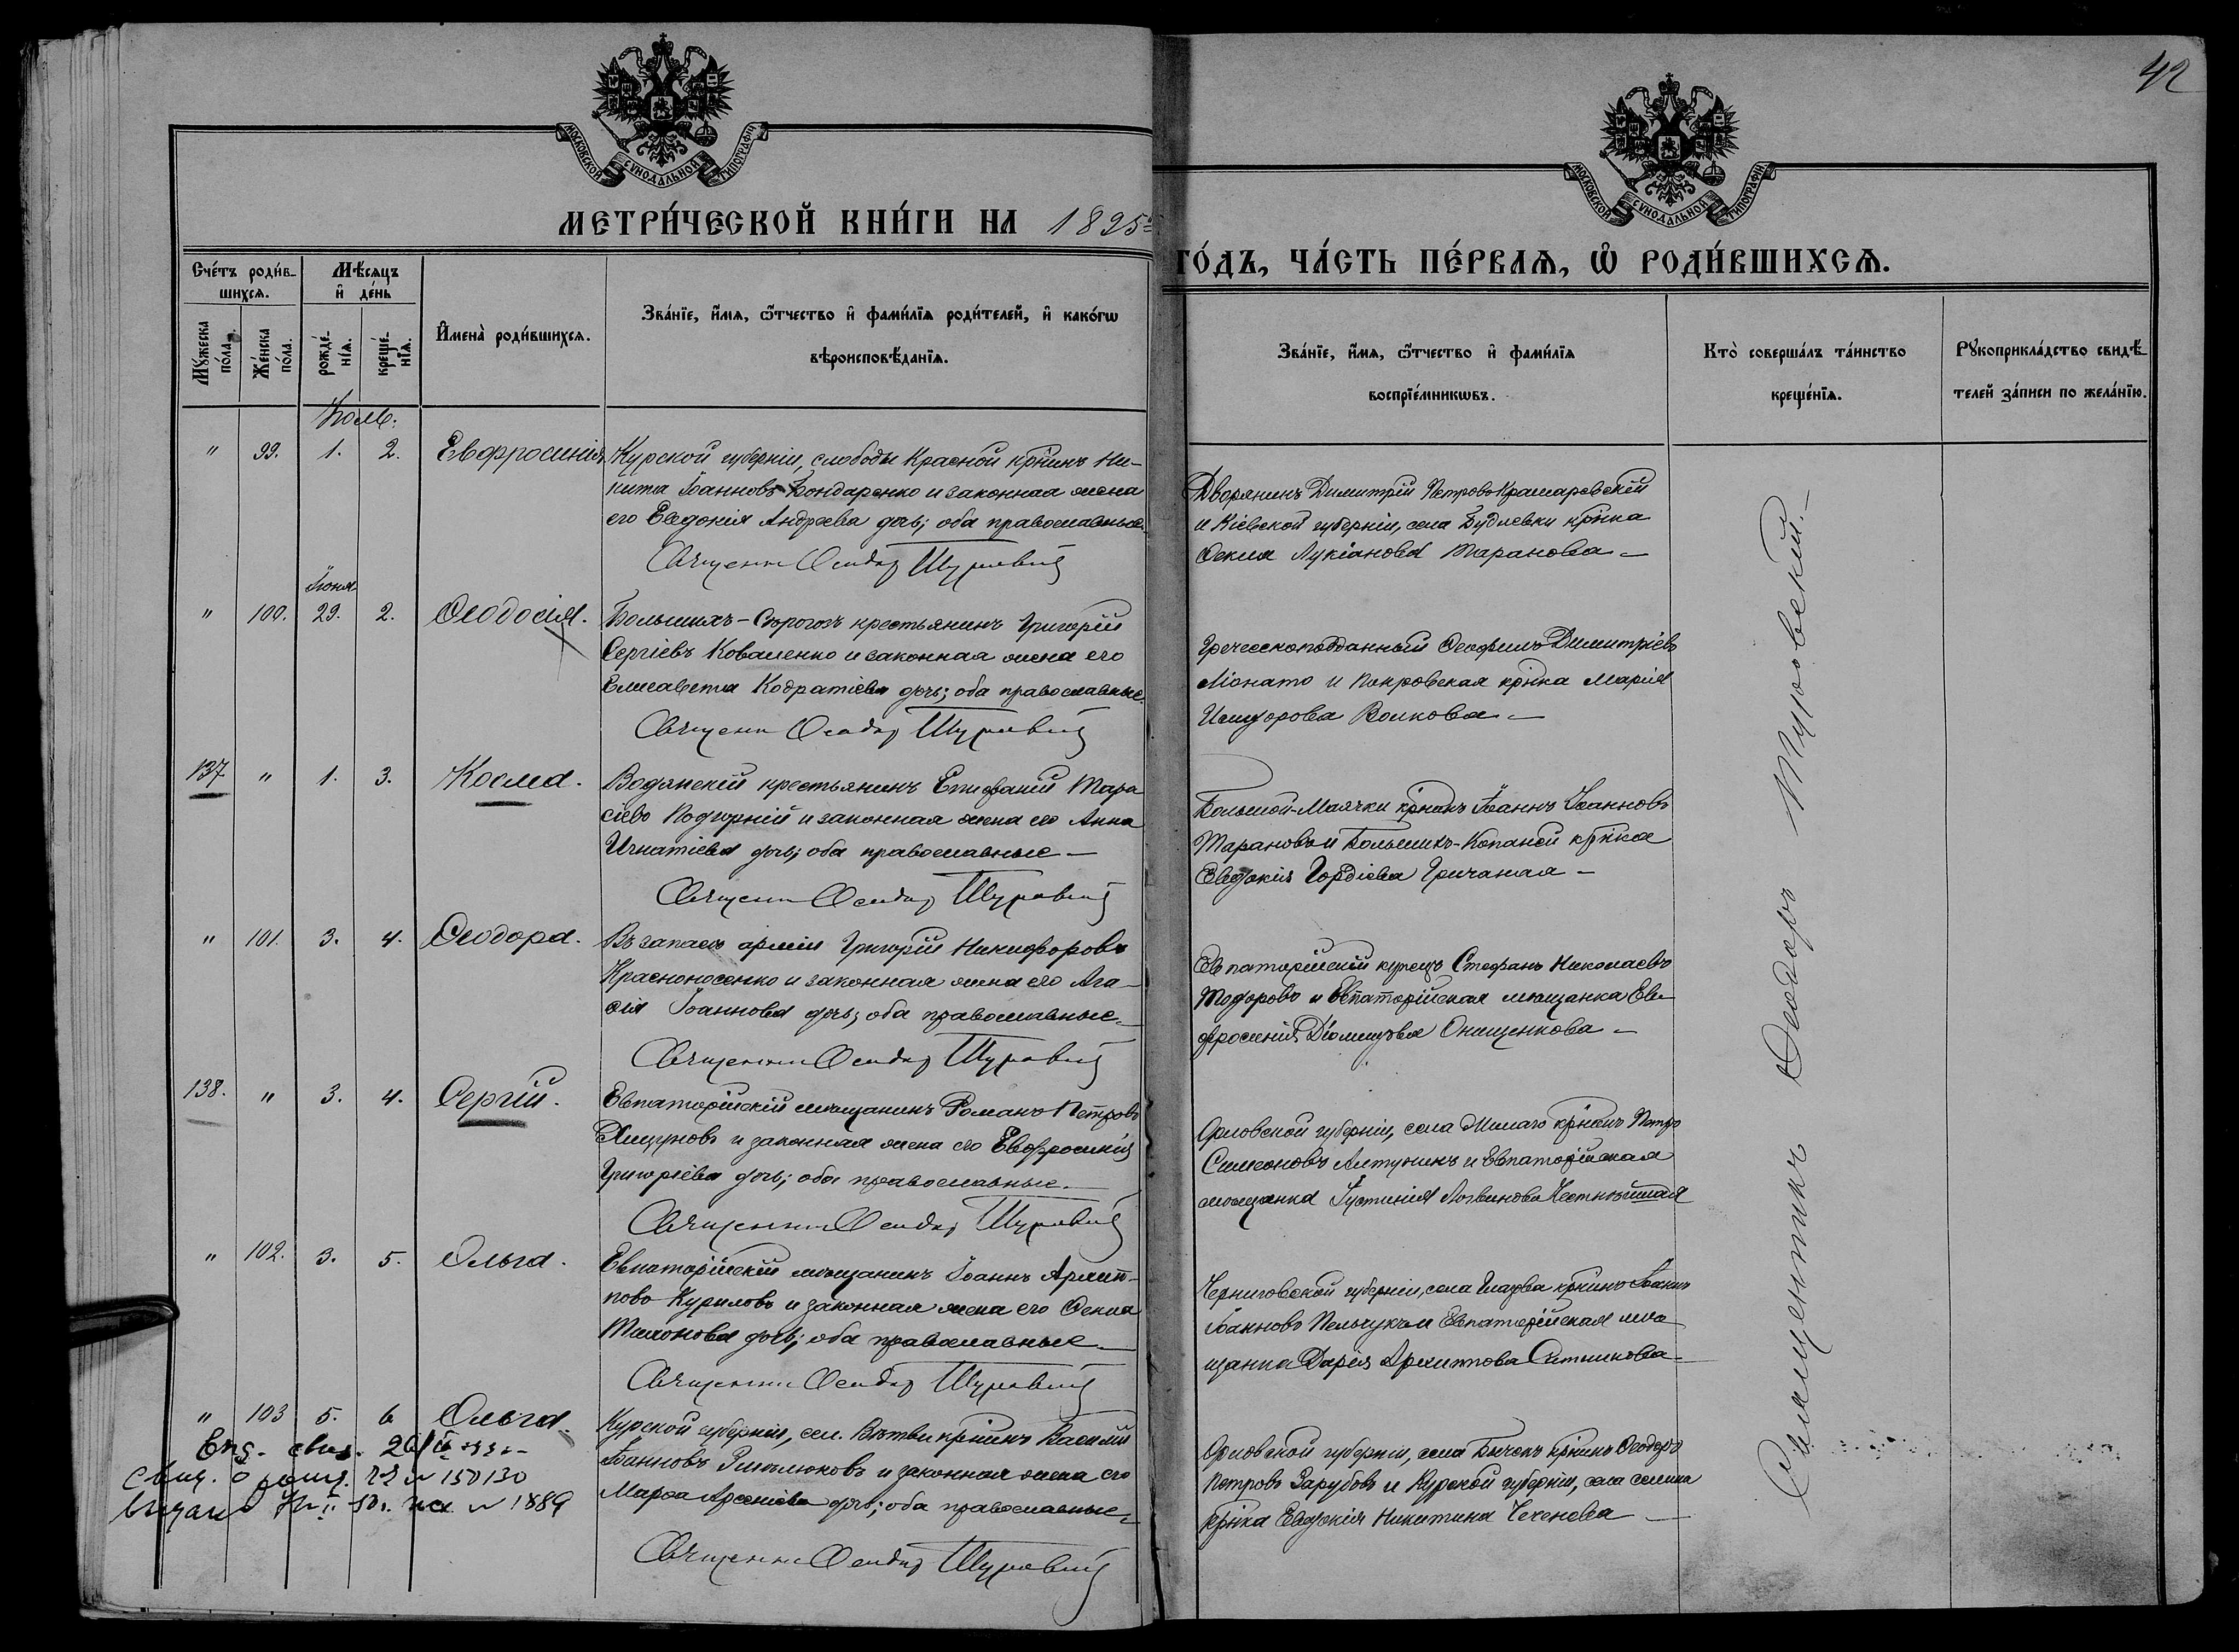 42
МОСКОВСКОЙ СѴНОДАЛЬНОЙ ТИПОГРАФІИ
МОСКОВСКОЙ СѴНОДАЛЬНОЙ ТИПОГРАФІИ
МЕТРИ́ЧЕСКОЙ КНИ́ГИ НА 1895
ГО́ДЪ, ЧА́СТЬ ПЕ́РВАѦ, Ѽ РОДИ́ВШИХСѦ.
Сче́тъ роди́в-
шихсѧ.
Мѣ́сѧцъ
и҆ де́нь
Мꙋ́жеска
по́ла.
Же́нска
по́ла.
рожде́-
нїѧ.
креще́-
нїѧ.
И҆мена̀ роди́вшихсѧ.
Зва́нїе, и҆́мѧ, ѻ҆́тчество и҆ фами́лїѧ роди́телей, и҆ како́гѡ
вѣроисповѣ́данїѧ.
Зва́нїе, и҆́мѧ, ѻ҆́тчество и҆ фами́лїѧ
воспрїе́мникѡвъ.
Кто̀ соверша́лъ та́инство
креще́нїѧ.
Рꙋкоприкла́дство свидѣ́-
телей за́писи по жела́нїю.
Іюль.
" 99. 1. 2. Евфросинія
Курской губерніи, слободы Красной кр҃нинъ Ни-
кита Іоанновъ Бондаренко и законная жена
его Евдокія Андреева дочь; оба православные
Священн Ѳеодоръ
Дворянинъ Димитрій Петровъ Крамаревскій
и Кіевской губерніи, села Будаевки кр҃нка
Ѳекла Лукіанова Таранова —
Іюня
" 100. 29. 2. Ѳеодосія.
Большихъ-Сѣрогозъ крестьянинъ Григорій
Сергіевъ Коваленко и законная жена его
Елисавета Кодратіева дочь; оба православные.
Священн Ѳеодоръ
Греческоподданный Ѳеофилъ Димитріевъ
Ліонато и Покровская кр҃нка Марія
Исидорова Волкова —
137 " 1. 3. Косма.
Водянскій крестьянинъ Епифаній Тара
сіевъ Подгорній и законная жена его Анна
Игнатіева дочь; оба православные —
Священн Ѳеодоръ
Большой-Маячки кр҃нинъ Іоаннъ Іоанновъ
Тарановъ и Большихъ-Копаней кр҃нка
Евдокія Гордіева Гричаная —
" 101. 3. 4. Ѳеодора.
Въ запасѣ арміи Григорій Никифоровъ
Красноносенко и законная жена его Ага-
сія Іоаннова дочь; оба православные —
Священн Ѳеодоръ
Евпаторійскій купецъ Стефанъ Николаевъ
Тодоровъ и Евпаторійская мѣщанка Ев-
фросинія Діомидова Онищенкова —
138. " 3. 4. Сергій.
Евпаторійскій мѣщанинъ Романъ Петровъ
и законная жена его Евфросинія
Григоріева дочь; оба православные.
Священн Ѳеодоръ
Орловской губерніи, села кр҃нинъ Петръ
Симеоновъ Алтунинъ и Евпаторійская
мѣщанка Іустинія Логвинова
" 102. 3. 5. Ольга.
Евпаторійскій мѣщанинъ Іоаннъ Архип-
повъ Куриловъ и законная жена его Ѳекла
Тихонова дочь; оба православные —
Священн Ѳеодоръ
Черниговской губерніи, села кр҃нинъ Іоаннъ
Іоанновъ и Евпаторійская мѣ-
щанка Дарія Архиппова Ситникова —
" 103 5. 6 Ольга.
Курской губерніи, сел. кр҃нинъ Василій
Іоанновъ и законная жена его
Марѳа Арсеніева дочь; оба православные —
Священн Ѳеодоръ
Орловской губерніи, села кр҃нинъ Ѳеодоръ
Петровъ Зарубовъ и Курской губерніи, села
кр҃нка Евдокія Никитина Чеченева —
№ 150130
№ 1889
Священникъ Ѳеодоръ